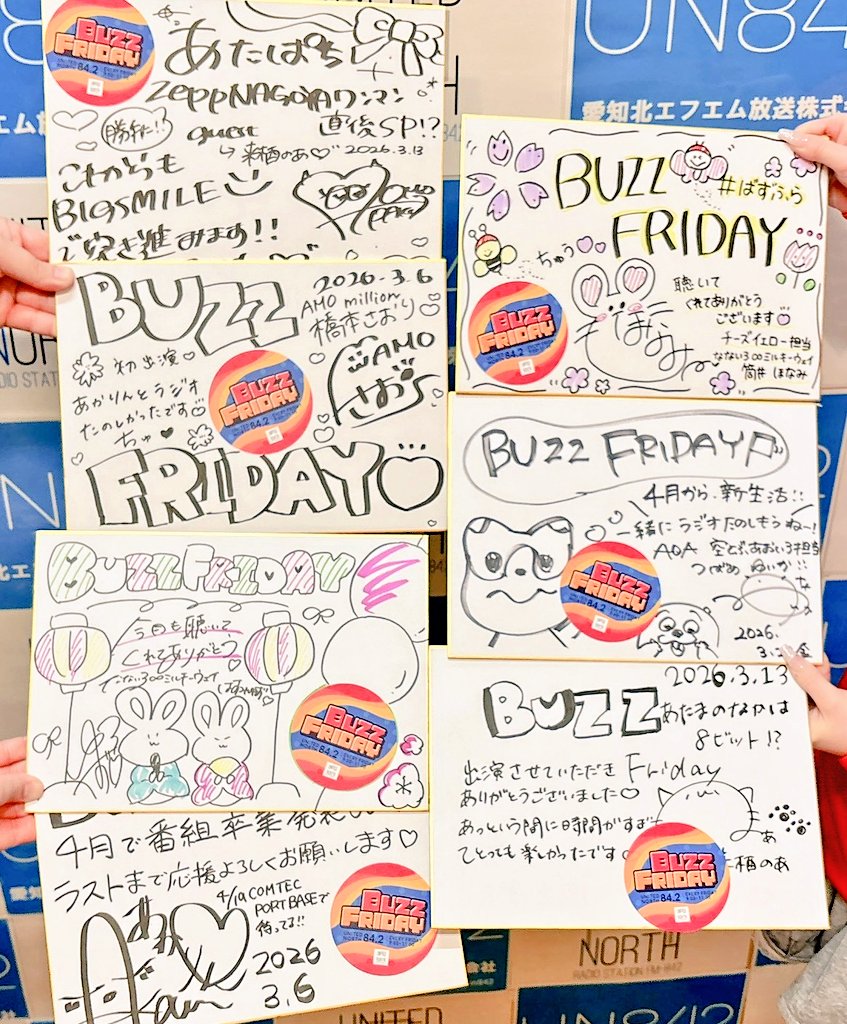 BUZZ
FRIDAY
UNITED NORTH 84.2
あたぱち
Zepp NAGOYAワンマン
guest
直後SP!?
勝利!!
→来栖のあ♡
2026.3.13
これからも
BIGSMILE
で突き進みます!!
BUZZ
2026.3.6
AMO million
橋本さおり
初出演♡
あかりんとラジオ
たのしかったです♡
ちゅ♥
AMO
さおり
BUZZ
FRIDAY
UNITED NORTH 84.2
FRIDAY
BUZZ FRIDAY
今日も聴いて
くれてありがとう
なない300ミルキーウェイ
BUZZ
FRIDAY
UNITED NORTH 84.2
4月で番組卒業発表
ラストまで応援よろしくお願いします♡
4/19 COMTEC
PORTBASEで
待ってる!!
2026
3.6
BUZZ
FRIDAY
UNITED NORTH 84.2
BUZZ
FRIDAY
#ばずふら
ちゅう♡♡
聴いて
くれてありがとう
ございます♡
チーズイエロー担当
なない300ミルキーウェイ
筒井 ほなみ
ほなみ
BUZZ
FRIDAY
UNITED NORTH 84.2
BUZZ FRIDAY
4月から、新生活!!
一緒にラジオたのしもうねー!
AOA 空とぶあおいろ担当
つばめ
BUZZ
FRIDAY
UNITED NORTH 84.2
2026.
2026.3.13
BUZZ
あたまのなかは
8ビット!?
出演させていただき Friday
ありがとうございました♡
あっという間に時間がすぎ
てとっても楽しかったです
栖のあ
BUZZ
FRIDAY
UNITED NORTH 84.2
UN842
愛知北エフエム放送株式
NORTH
RADIO STATION FM-842
UNITED
UN842